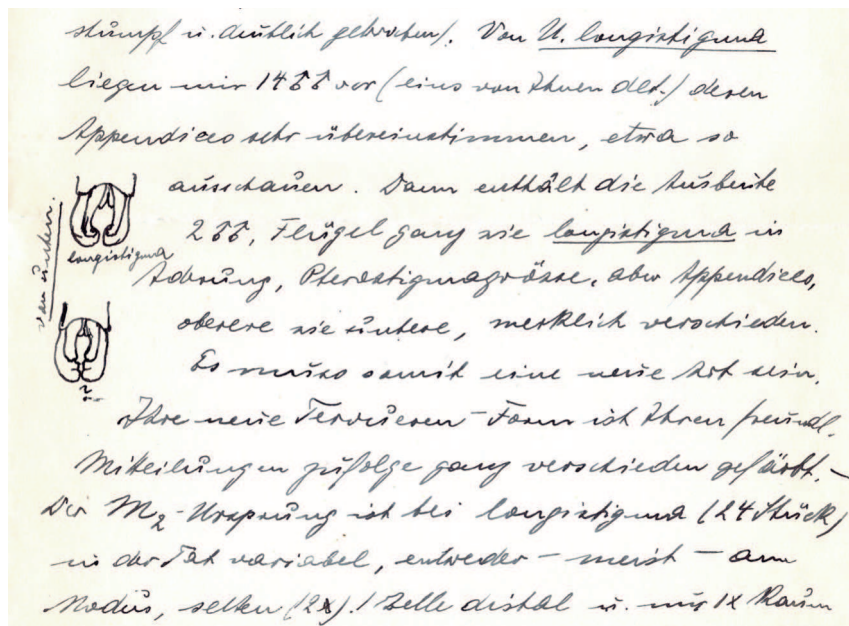 stumpf u. deutlich gebrochen). Von U. longistigma
liegen mir 14 ♂♂ vor (eins von Ihnen det.) deren
Appendices sehr übereinstimmen, etwa so
ausschauen. Dann enthält die Ausbeute
2 ♂♂, Flügel ganz wie longistigma in
longistigma
Aderung, Pterostigmagrösse, aber Appendices,
von unten.
obere wie untere, merklich verschieden.
Es muss somit eine neue Art sein.
?
Ihre neue Tervueren-Form ist Ihren freundl.
Mitteilungen zufolge ganz verschieden gefärbt. –
Der M2-Ursprung ist bei longistigma (24 Stück)
in der Tat variabel, entweder – meist – am
Nodus, selten (2x) 1 Zelle distal u. nur 1x kaum